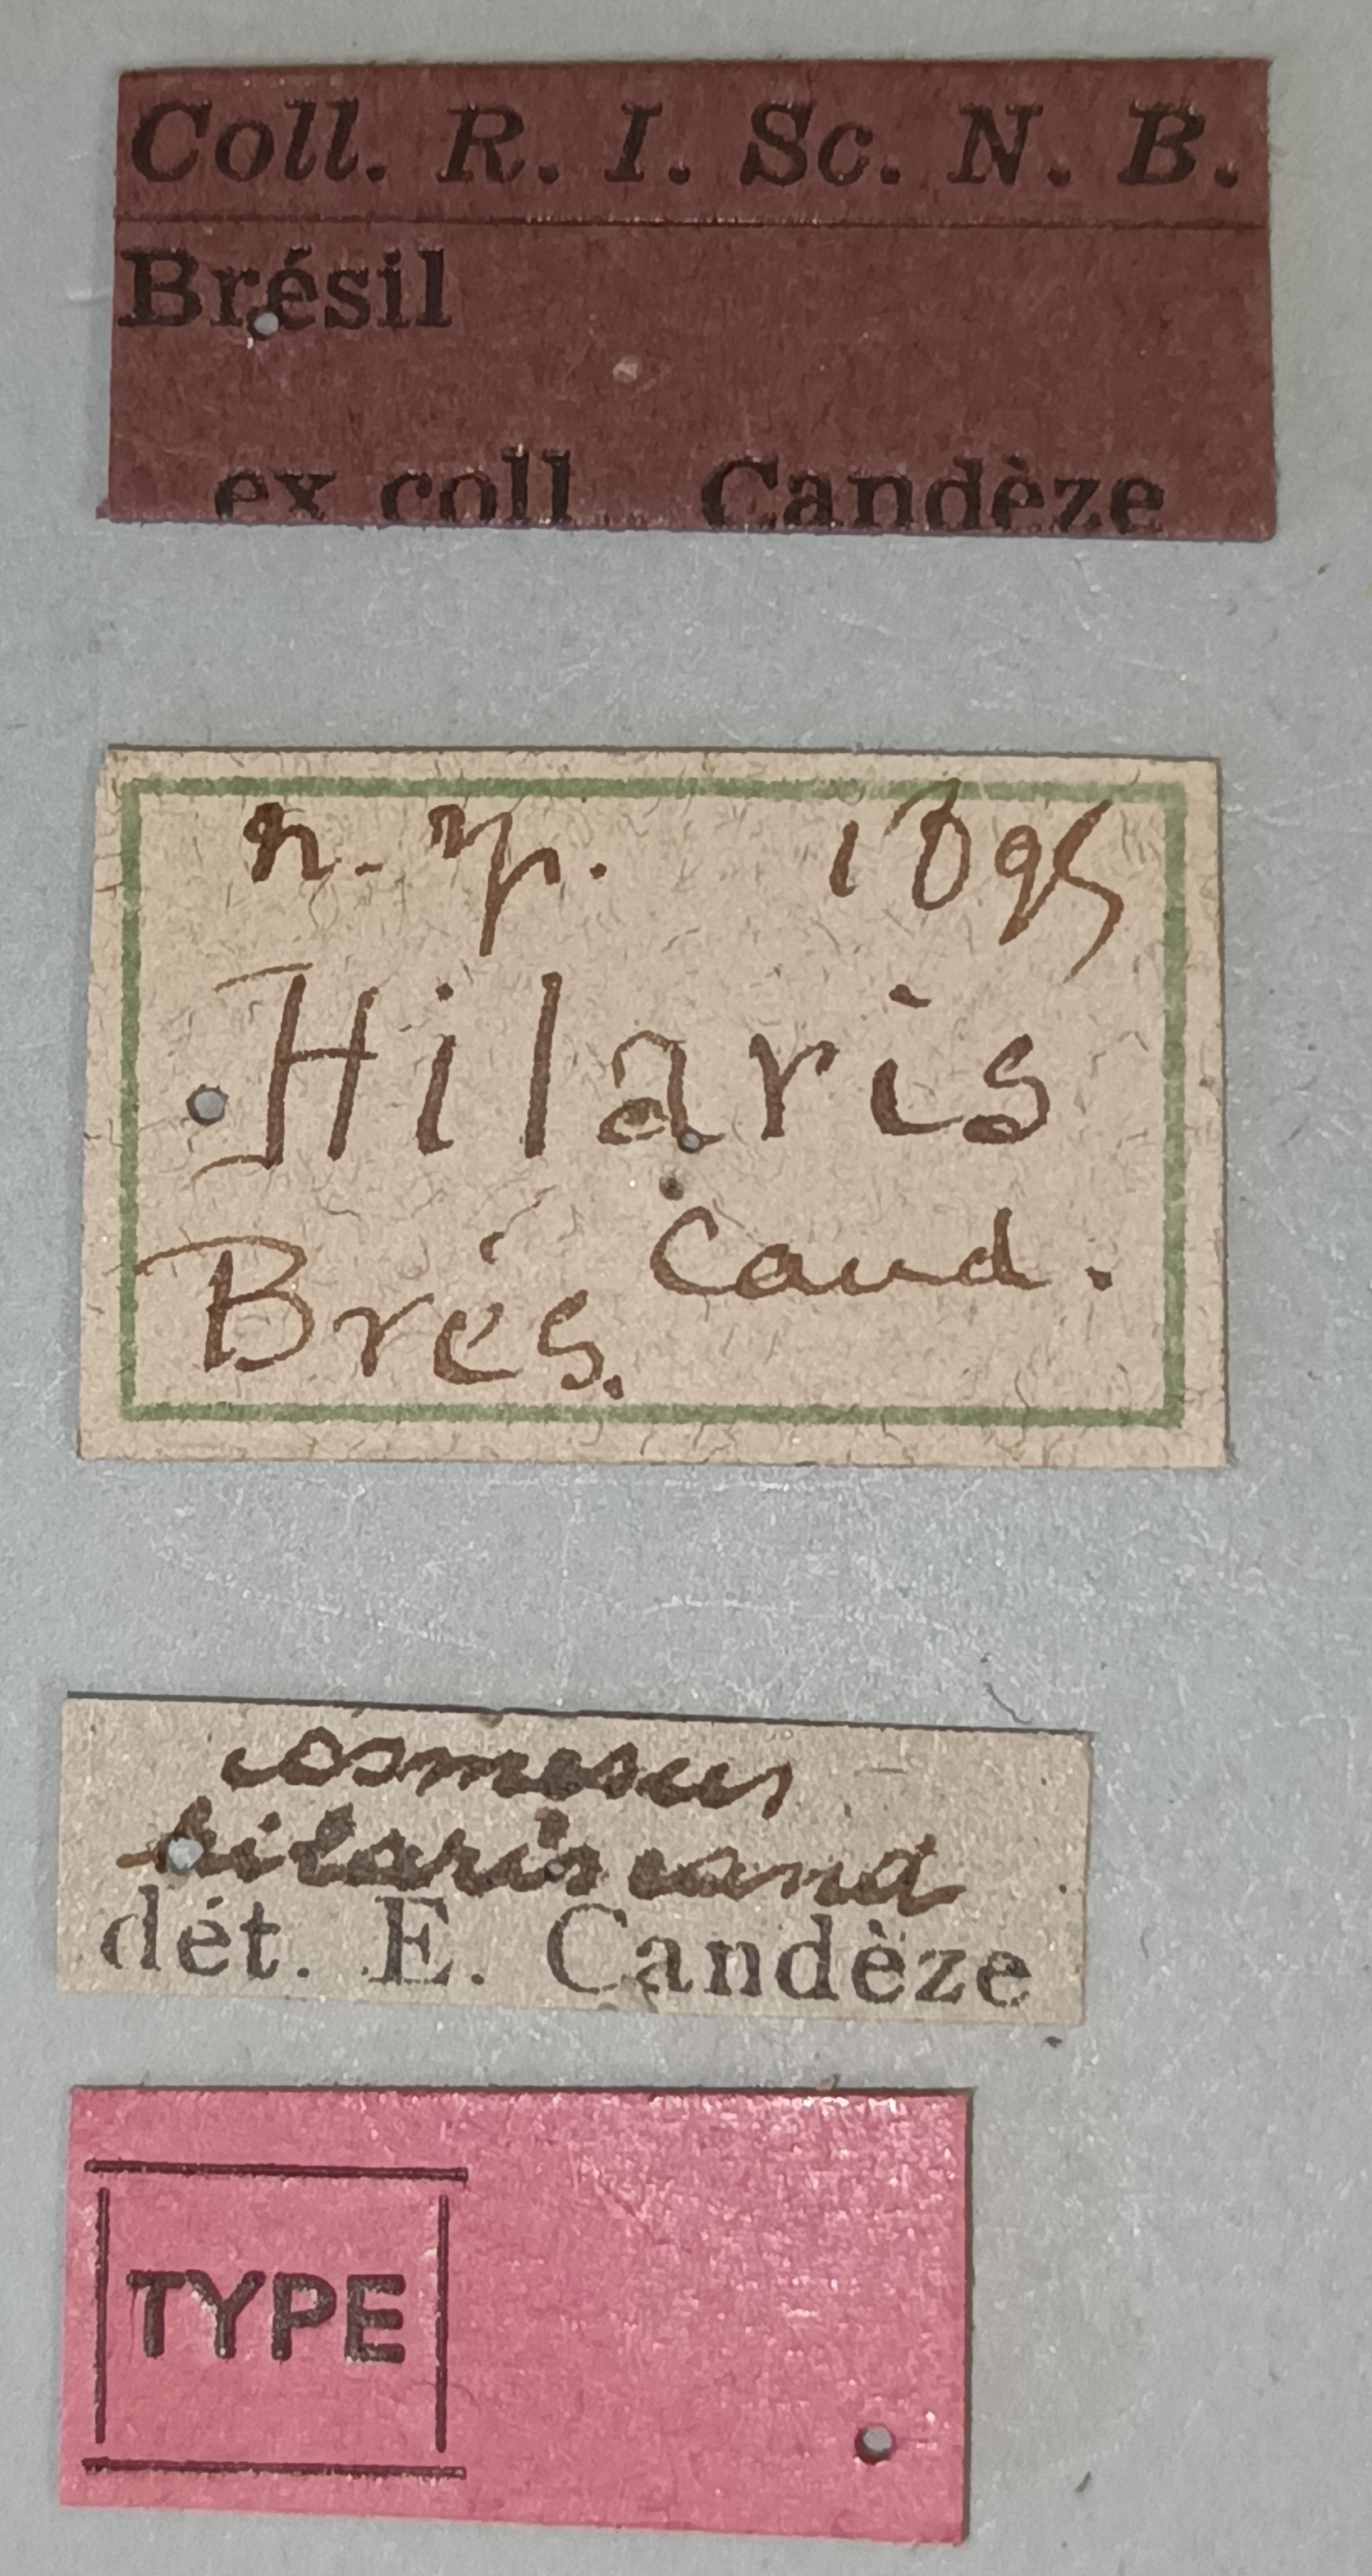 Coll. R. I. Sc. N. B.
Brésil
ex coll. Candèze
n. sp. 1895
Hilaris
Cand.
Brés.
cosmesus
hilaris cand
dét. E. Candèze
TYPE